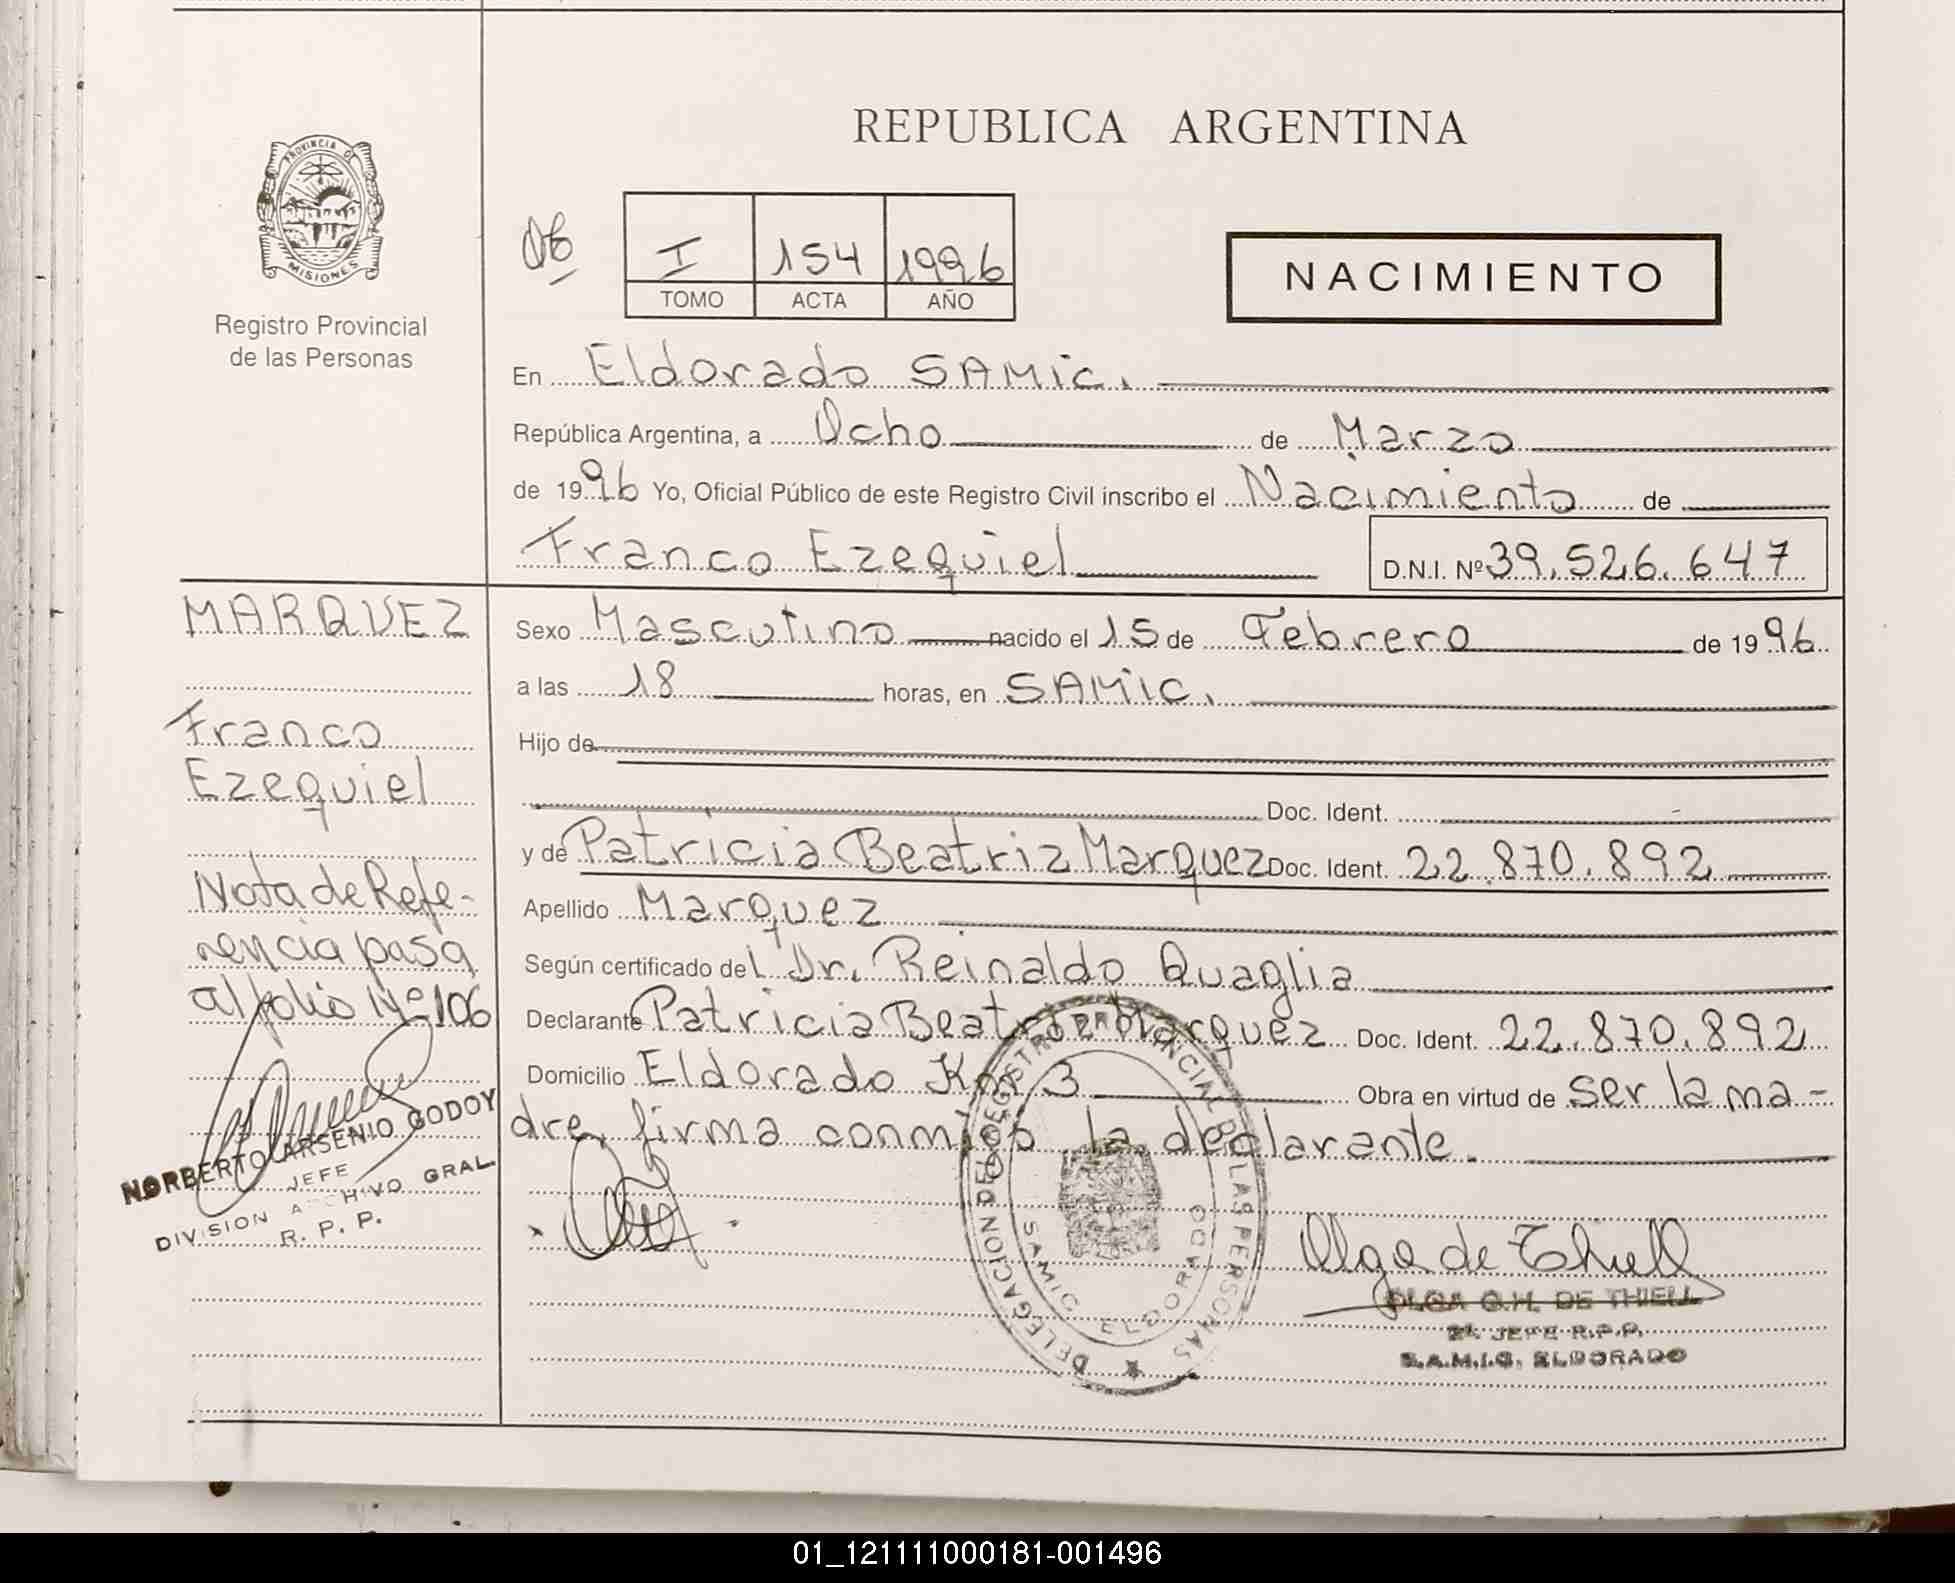 REPUBLICA ARGENTINA
PROVINCIA DE
MISIONES
Registro Provincial
de las Personas
06
I 154 1996
TOMO ACTA AÑO
NACIMIENTO
En Eldorado SAMic.
República Argentina, a Ocho de Marzo
de 1996 Yo, Oficial Público de este Registro Civil inscribo el Nacimiento de
Franco Ezequiel D.N.I. Nº 39.526.647
MARQUEZ
Franco
Ezequiel
Nota de Refe-
rencia pasa
al folio Nº 106
NORBERTO ARSENIO GODOY
JEFE
DIVISION ARCHIVO GRAL
R. P. P.
Sexo Masculino nacido el 15 de Febrero de 1996
a las 18 horas, en SAMIC.
Hijo de
Doc. Ident. -
y de Patricia Beatriz Marquez Doc. Ident. 22.870.892
Apellido Marquez
Según certificado del Dr. Reinaldo Quaglia
Declarante Patricia Beatriz Marquez Doc. Ident. 22.870.892
Domicilio Eldorado Km 3 Obra en virtud de ser la ma-
dre, firma conmigo la declarante.
DELEGACION DEL REGISTRO PROVINCIAL DE LAS PERSONAS
SAMIC ELDORADO
Olga de Thiell
OLGA G.H. DE THIELL
2ª JEFE R.P.P.
S.A.M.I.C. ELDORADO
01_121111000181-001496